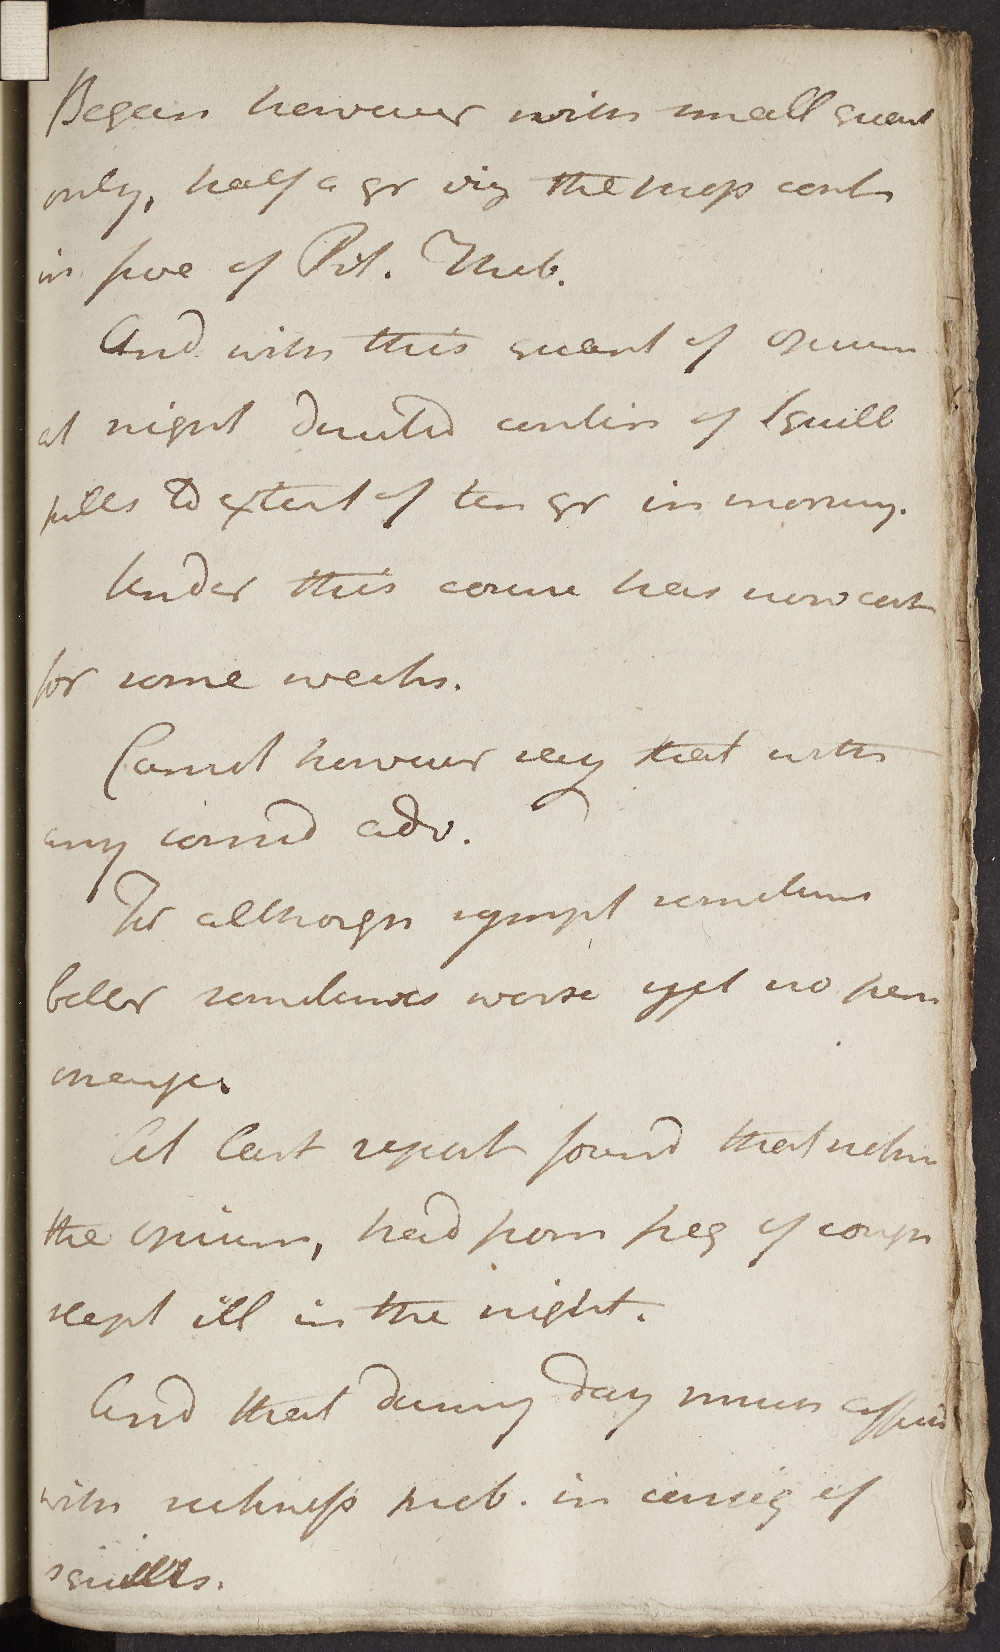 Began however with small quant
only, half a gr viz the prop cont
in five of Pil. Theb.
And with this quant of opium
at night directed contin of Squill
pills to extent of ten gr in morning.
Under this course has now cont
for some weeks.
Cannot however say that with
any consid adv.
For although sympt sometimes
better sometimes worse yet no per
change.
At last report found that notw
the opium, had from freq of cough
slept ill in the night.
And that during day much affect
with sickness prob. in conseq of
squills.